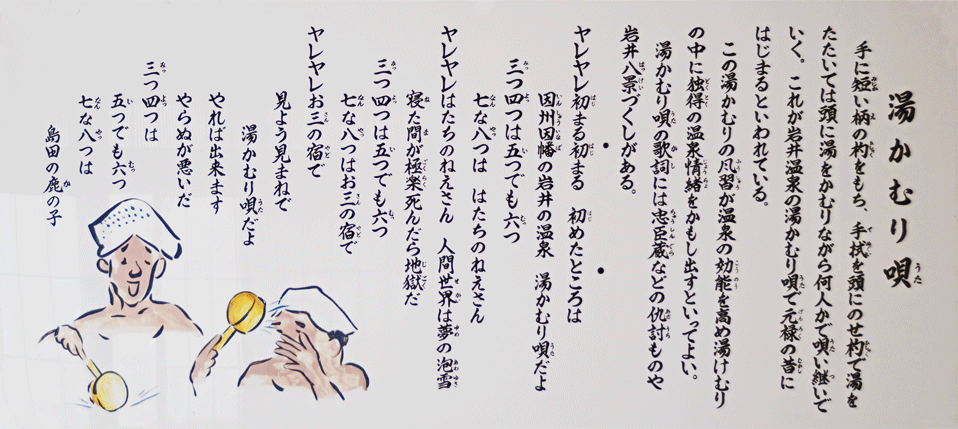 湯かむり唄
手に短い柄の杓をもち、手拭を頭にのせ杓で湯を
たたいては頭に湯をかむりながら何人かで唄い継いで
いく。これが岩井温泉の湯かむり唄で元禄の昔に
はじまるといわれている。
この湯かむりの風習が温泉の効能を高め湯けむり
の中に独得の温泉情緒をかもし出すといってよい。
湯かむり唄の歌詞には忠臣蔵などの仇討ものや
岩井八景づくしがある。
ヤレヤレ初まる初まる 初めたところは
因州因幡の岩井の温泉 湯かむり唄だよ
三つ四つは五つでも六つ
七な八つは はたちのねえさん
ヤレヤレはたちのねえさん 人間世界は夢の泡雪
寝た間が極楽死んだら地獄だ
三つ四つは五つでも六つ
七な八つはお三の宿で
ヤレヤレお三の宿で
見よう見まねで
湯かむり唄だよ
やれば出来ます
やらぬが悪いだ
三つ四つは
五つでも六つ
七な八つは
島田の鹿の子